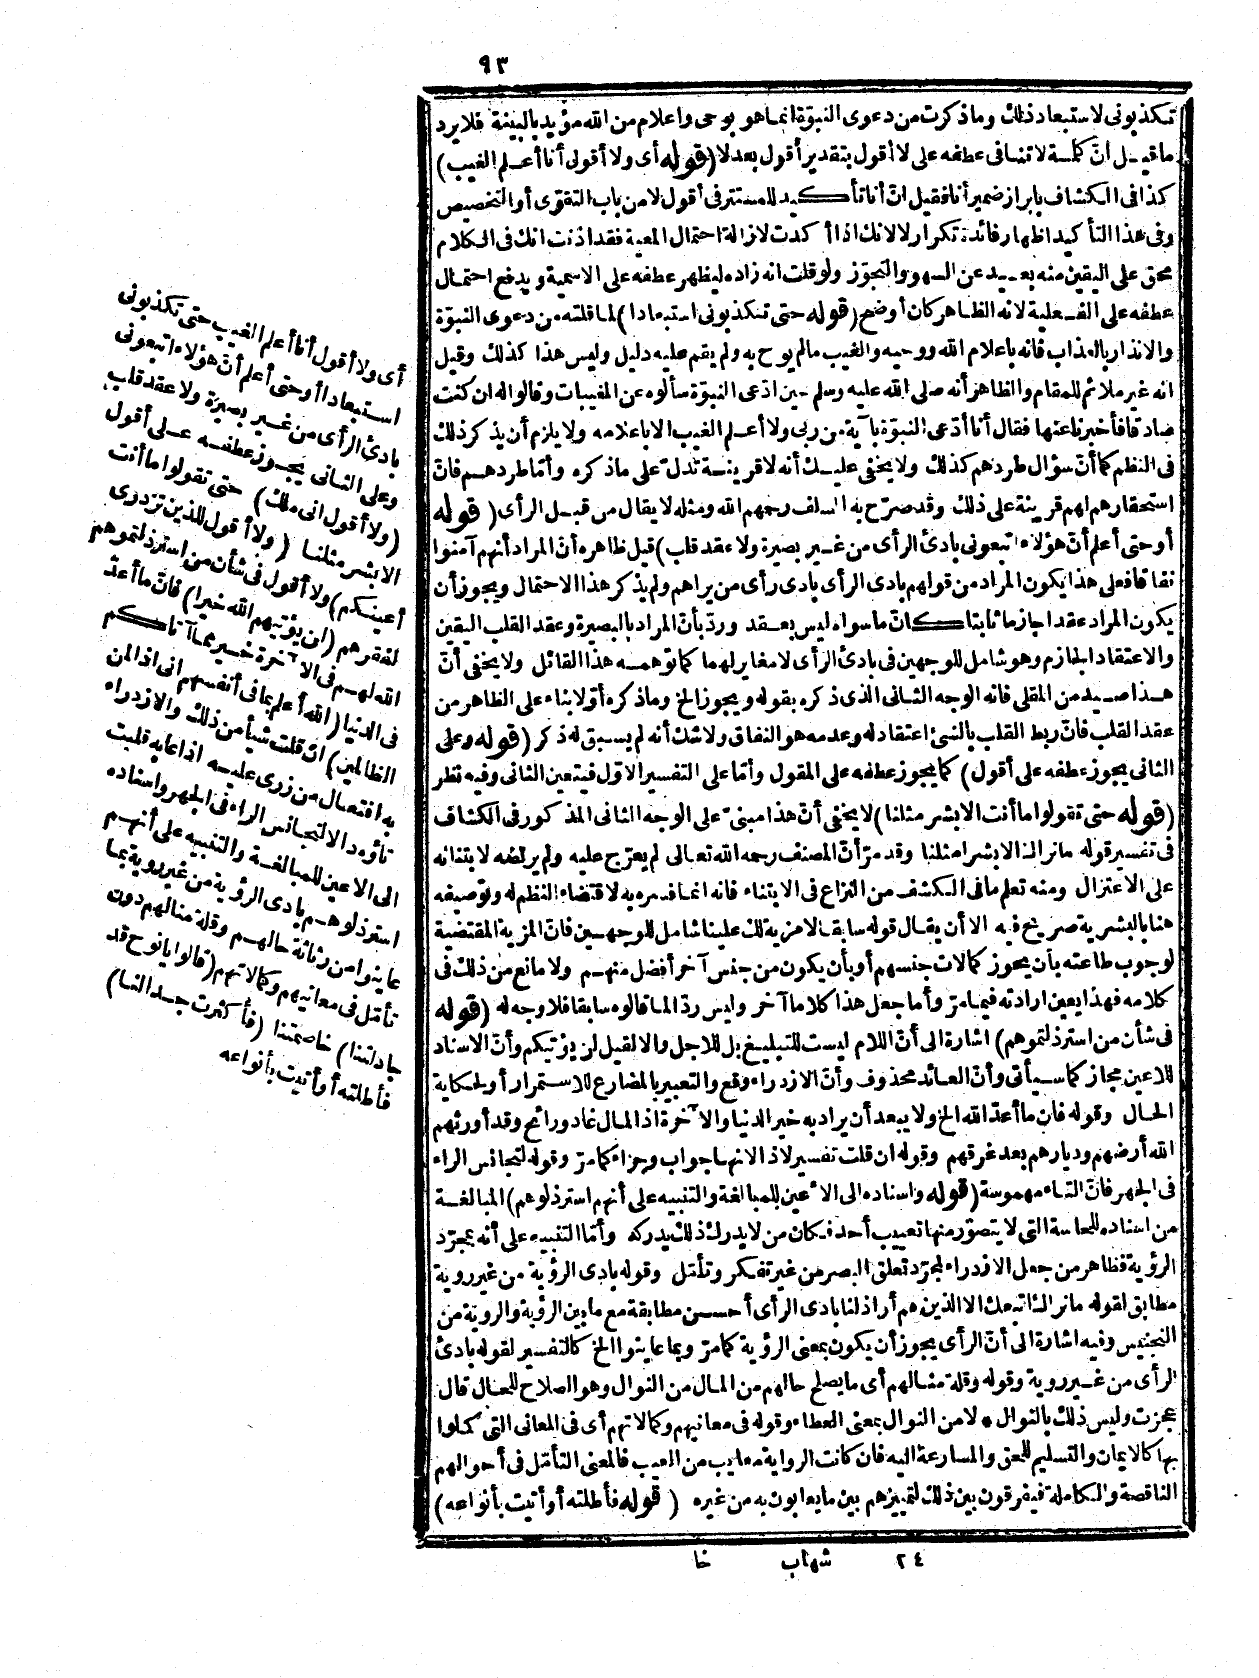 ٩٣
تكذبونى لاستبعاد ذلك وما ذكرت من دعوى النبوّة انما هو بوحى واعلام من الله مؤيد بالبينة فلا يرد
ما قيل انّ كلمة لا تنافى عطفه على لا أقول بتقدير أقول بعد لا (قوله أى ولا أقول أنا أعلم الغيب)
كذا فى الكشاف بابراز ضمير أنا فقيل انّ أنا تأكيد للمستتر فى أقول لا من باب التقوّى أو التخصيص
وفى هذا التأكيد اظهار فائدة تكرار لا لانك اذا أكدت لازالة احتمال المعية فقد اذنت انك فى الكلام
محق على اليقين منه بعيد عن السهو والتجوّز ولو قلت انه زاده ليظهر عطفه على الاسمية ويدفع احتمال
عطفه على الفعلية لانه الظاهر كان أوضح (قوله حتى تكذبونى استبعادا) لما قلته من دعوى النبوّة
والانذار بالعذاب فانه باعلام الله ووحيه والغيب ما لم يوح به ولم يقم عليه دليل وليس هذا كذلك وقيل
انه غير ملائم للمقام والظاهر أنه صلى الله عليه وسلم حين ادّعى النبوّة سألوه عن المغيبات وقالوا له ان كنت
صادقا فأخبرنا عنها فقال أنا أدّعى النبوّة بآية من ربى ولا أعلم الغيب الا باعلامه ولا يلزم أن يذكر ذلك
فى النظم كما أنّ سؤال طردهم كذلك ولا يخفى عليك أنه لا قرينة تدلّ على ما ذكره وأمّا طردهم فانّ
استحقارهم لهم قرينة على ذلك وقد صرّح به السلف رحمهم الله ومثله لا يقال من قبل الرأى (قوله
أو حتى أعلم أنّ هؤلاء اتبعونى بادئ الرأى من غير بصيرة ولا عقد قلب) قيل ظاهره أنّ المراد أنهم آمنوا
نفاقا فعلى هذا يكون المراد من قولهم بادى الرأى بادى رأى من يراهم ولم يذكر هذا الاحتمال ويجوز أن
يكون المراد عقدا جازما ثابتا كانّ ما سواه ليس بعقد وردّ بأنّ المراد بالبصيرة وعقد القلب اليقين
والاعتقاد الجازم وهو شامل للوجهين فى بادئ الرأى لا مغاير لهما كما توهمه هذا القائل ولا يخفى أنّ
هذا صيد من المقلى فانه الوجه الثانى الذى ذكره بقوله ويجوز الخ وما ذكره أوّلا بناء على الظاهر من
عقد القلب فانّ ربط القلب بالشئ اعتقاد له وعدمه هو النفاق ولا شك أنه لم يسبق له ذكر (قوله وعلى
الثانى يجوز عطفه على أقول) كما يجوز عطفه على المقول وأمّا على التفسير الاوّل فيتعين الثانى وفيه نظر
(قوله حتى تقولوا ما أنت الا بشر مثلنا) لا يخفى أنّ هذا مبنىّ على الوجه الثانى المذكور فى الكشاف
فى تفسير قوله ما نراك الا بشرا مثلنا وقد مرّ أنّ المصنف رحمه الله تعالى لم يعرّج عليه ولم يرتضه لابتنائه
على الاعتزال ومنه تعلم ما فى الكشف من النزاع فى الابتناء فانه انما فسره به لاقتضاء النظم له وتوصيفه
هنا بالبشرية صريح فيه الا أن يقال قوله سابقا لا مزية لك علينا شامل للوجهين فانّ المزية المقتضية
لوجوب طاعته بأن يحوز كمالات جنسهم أو بأن يكون من جنس آخر أفضل منهم ولا مانع من ذلك فى
كلامه فهذا يعين ارادته فيما مرّ وأما جعل هذا كلاما آخر وليس ردّا لما قالوه سابقا فلا وجه له (قوله
فى شأن من استرذلتموهم) اشارة الى أنّ اللام ليست للتبليغ بل للاجل والا لقيل لن يؤتيكم وأنّ الاسناد
للاعين مجاز كما سيأتى وأنّ العائد محذوف وأنّ الازدراء وقع والتعبير بالمضارع للاستمرار أو لحكاية
الحال وقوله فان ما أعدّ الله الخ ولا يبعد أن يراد به خير الدنيا والآخرة اذ المال غاد ورائح وقد أورثهم
الله أرضهم وديارهم بعد غرقهم وقوله ان قلت تفسير لاذ الانها جواب وجزاء كما مرّ وقوله لتجانس الراء
فى الجهر فانّ التاء مهموسة (قوله واسناده الى الاعين للمبالغة والتنبيه على أنهم استرذلوهم) المبالغة
من اسناده للحاسة التى لا يتصوّر منها تعييب أحد فكان من لا يدرك ذلك يدركه وأمّا التنبيه على أنه بمجرّد
الرؤية فظاهر من جعل الازدراء لمجرّد تعلق البصر من غير تفكر وتأمّل وقوله بادى الرؤية من غير روية
مطابق لقوله ما نراك اتبعك الا الذين هم أراذلنا بادى الرأى أحسن مطابقة مع ما بين الرؤية والروية من
التجنيس وفيه اشارة الى أنّ الرأى يجوز أن يكون بمعنى الرؤية كما مرّ وبما عاينوا الخ كالتفسير لقوله بادئ
الرأى من غير روية وقوله وقلة منالهم أى ما يصلح حالهم من المال من النوال وهو الصلاح للحال قال
عجزت وليس ذلك بالنوال * لا من النوال بمعنى العطاء وقوله فى معانيهم وكمالاتهم أى فى المعانى التى كملوا
بها كالايمان والتسليم للحق والمسارعة اليه فان كانت الرواية معايب من العيب فالمعنى التأمّل فى أحوالهم
الناقصة والكاملة فيفرقون بين ذلك لتمييزهم بين ما يعابون به من غيره (قوله فأطلته أو أتيت بأنواعه)
أى ولا أقول أنا أعلم الغيب حتى تكذبونى
استبعادا أو حتى أعلم أنّ هؤلاء اتبعونى
بادئ الرأى من غير بصيرة ولا عقد قلب
وعلى الثانى يجوز عطفه على أقول
(ولا أقول انى ملك) حتى تقولوا ما أنت
الا بشر مثلنا (ولا أقول للذين تزدرى
أعينكم) ولا أقول فى شأن من استرذلتموهم
لفقرهم (لن يؤتيهم الله خيرا) فانّ ما أعدّ
الله لهم فى الآخرة خير مما آتاكم
فى الدنيا (الله أعلم بما فى أنفسهم انى اذا لمن
الظالمين) ان قلت شيأ من ذلك والازدراء
به افتعال من زرى عليه اذا عابه قلبت
تاؤه دالا لتجانس الراء فى الجهر واسناده
الى الاعين للمبالغة والتنبيه على أنهم
استرذلوهم بادى الرؤية من غير روية بما
عاينوا من رثاثة حالهم وقلة منالهم دون
تأمّل فى معانيهم وكمالاتهم (قالوا يا نوح قد
جادلتنا) خاصمتنا (فأكثرت جدالنا)
فأطلته أو أتيت بأنواعه
٢٤ شهاب خا